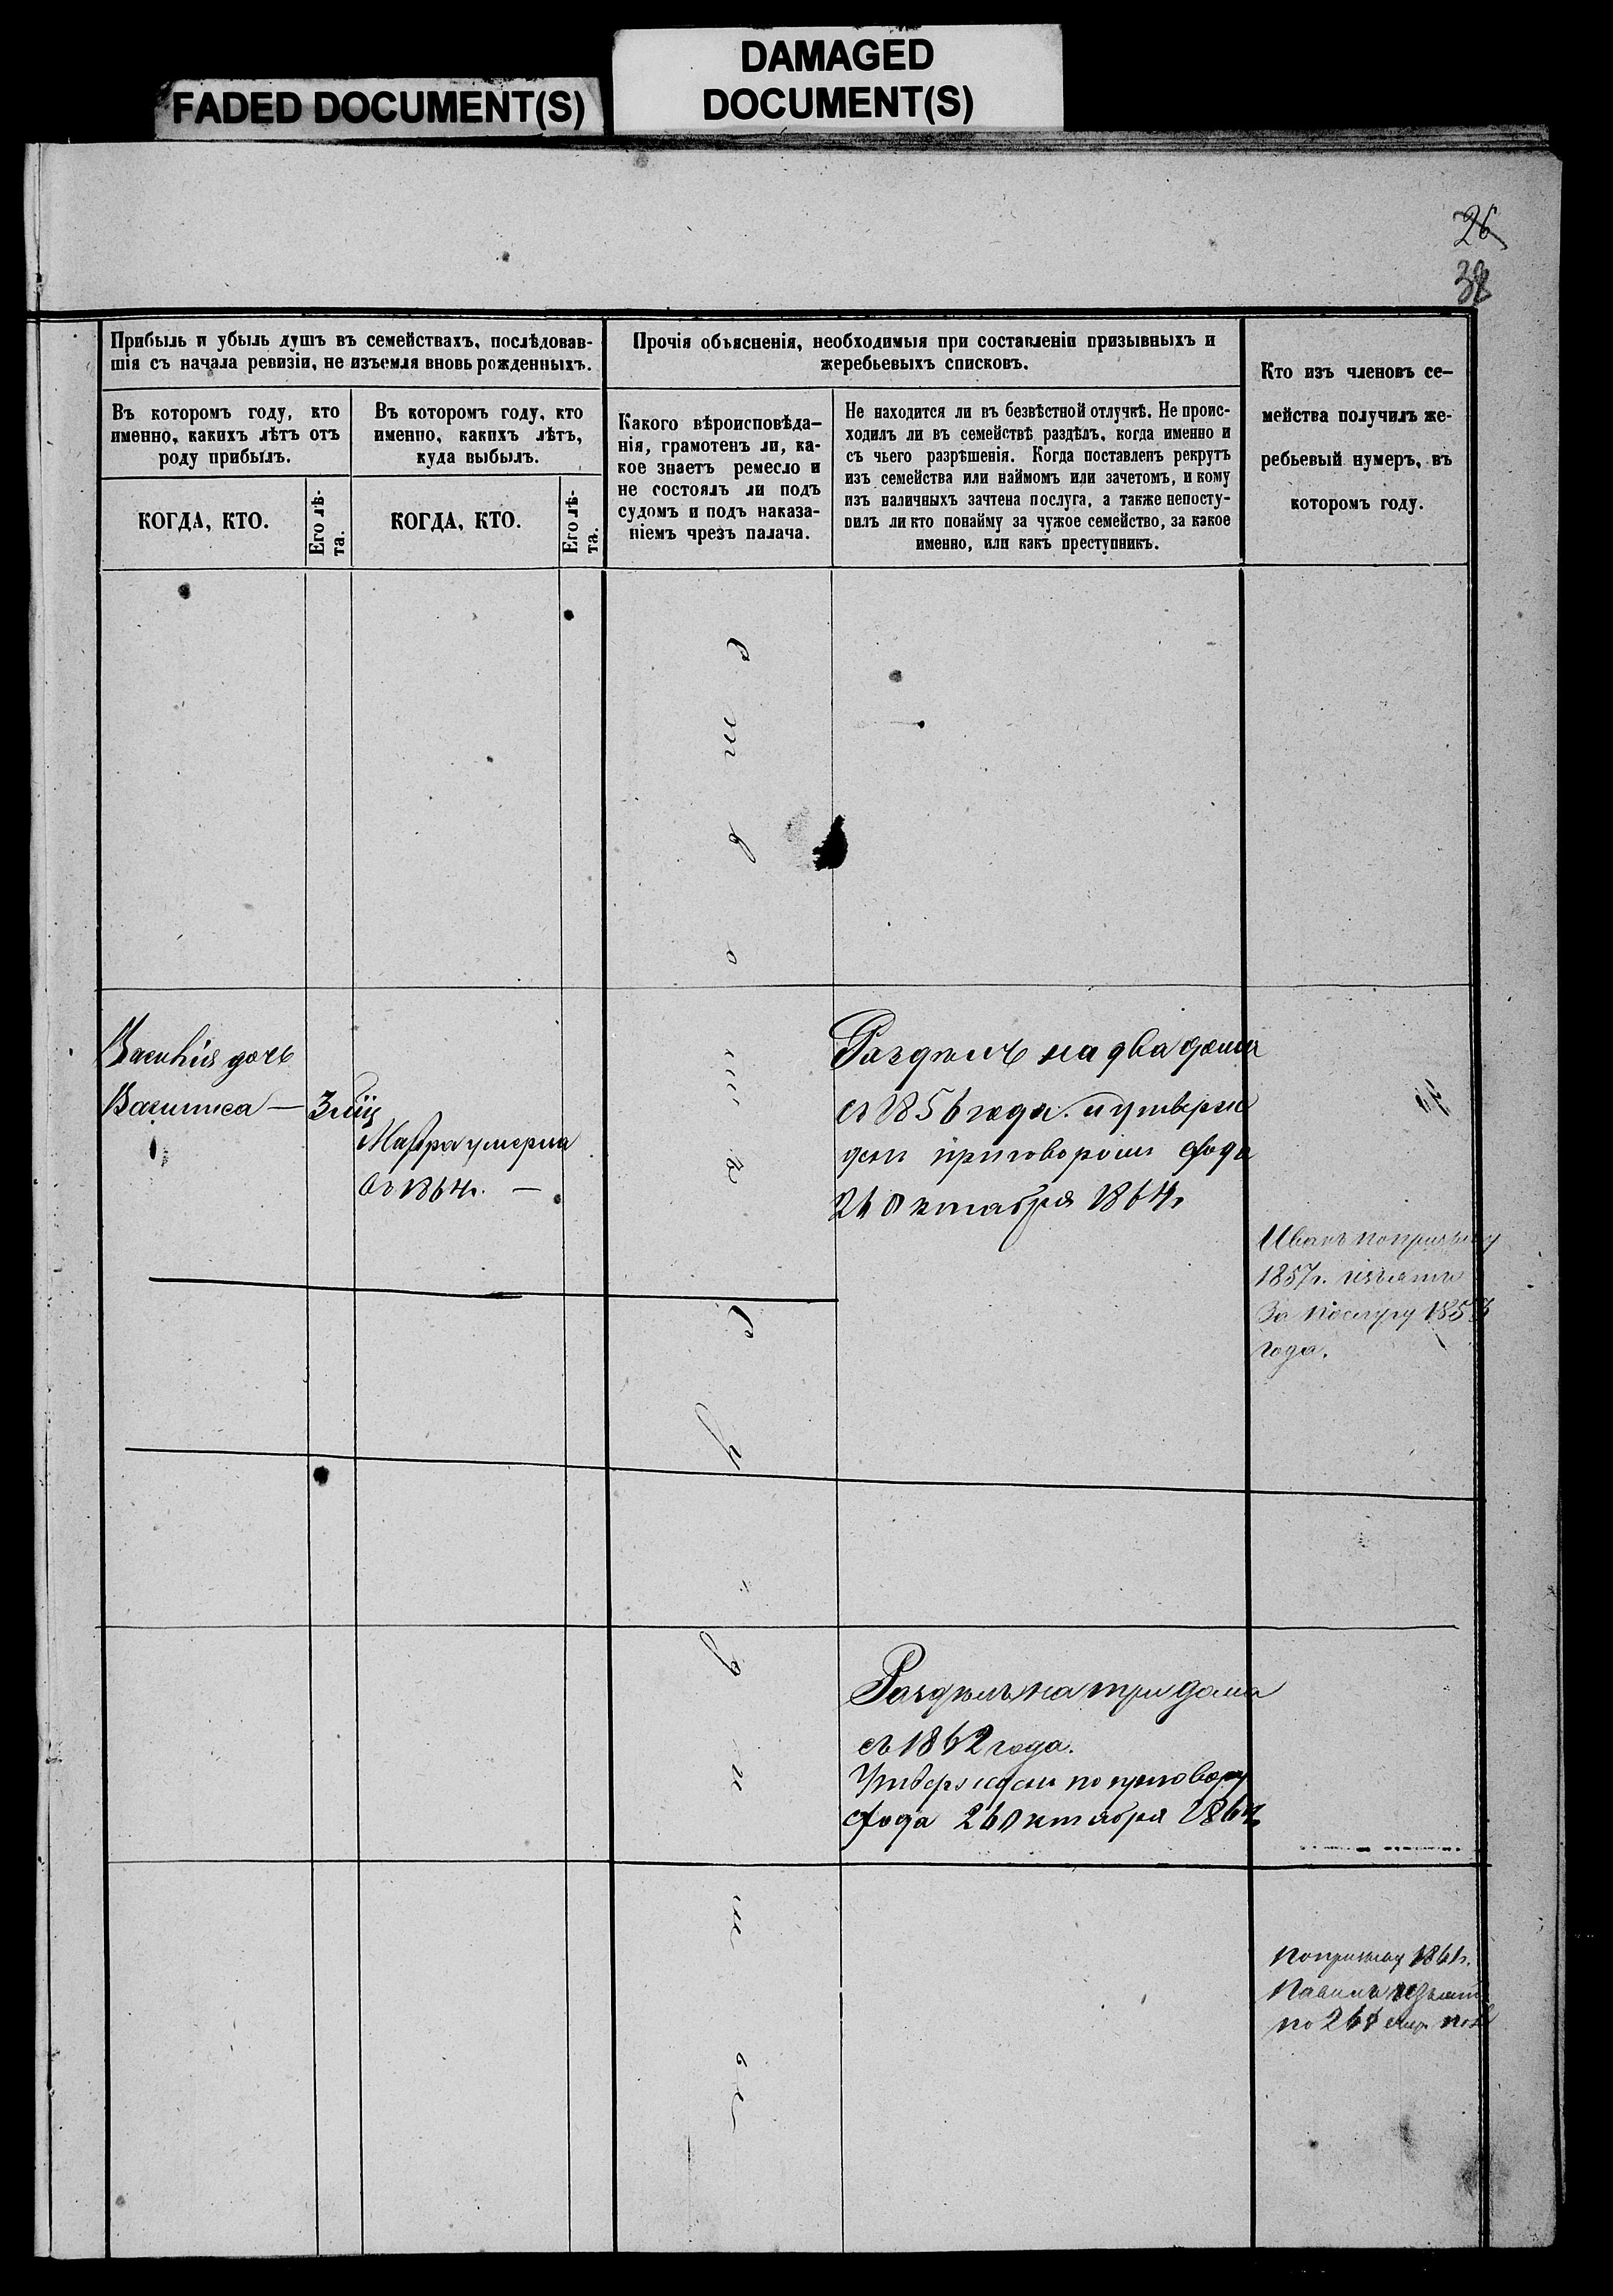 FADED DOCUMENT(S)
DAMAGED
DOCUMENT(S)
26
Прибыль и убыль душъ въ семействахъ, послѣдовав-
шія съ начала ревизіи, не изъемля вновь рожденныхъ.
Въ которомъ году, кто
именно, какихъ лѣтъ отъ
роду прибылъ.
КОГДА, КТО.
Его лѣ-
та.
Въ которомъ году, кто
именно, какихъ лѣтъ,
куда выбылъ.
КОГДА, КТО.
Его лѣ-
та.
Прочія объясненія, необходимыя при составленіи призывныхъ и
жеребьевыхъ списковъ.
Какого вѣроисповѣда-
нія, грамотенъ ли, ка-
кое знаетъ ремесло и
не состоялъ ли подъ
судомъ и подъ наказа-
ніемъ чрезъ палача.
Не находится ли въ безвѣстной отлучкѣ. Не проис-
ходилъ ли въ семействѣ раздѣлъ, когда именно и
съ чьего разрѣшенія. Когда поставленъ рекрутъ
изъ семейства или наймомъ или зачетомъ, и кому
изъ наличныхъ зачтена послуга, а также непосту-
пилъ ли кто понайму за чужое семейство, за какое
именно, или какъ преступникъ.
Кто изъ членовъ се-
мейства получилъ же-
ребьевый нумеръ, въ
которомъ году.
дочь
Василиса —
Мавра умерла
въ 1864г. —
Раздѣлъ на два дома
съ 1856 года. и утверж
денъ приговоромъ схода
26 Октября 1864г
Иванъ по призыву
1857г. изъятъ
За послугу
года.
Раздѣлъ на три дома
съ 1862 года.
Утвержденъ по приговору
схода 26 Октября 1864г
По призыву 1861г.
изъятъ
по